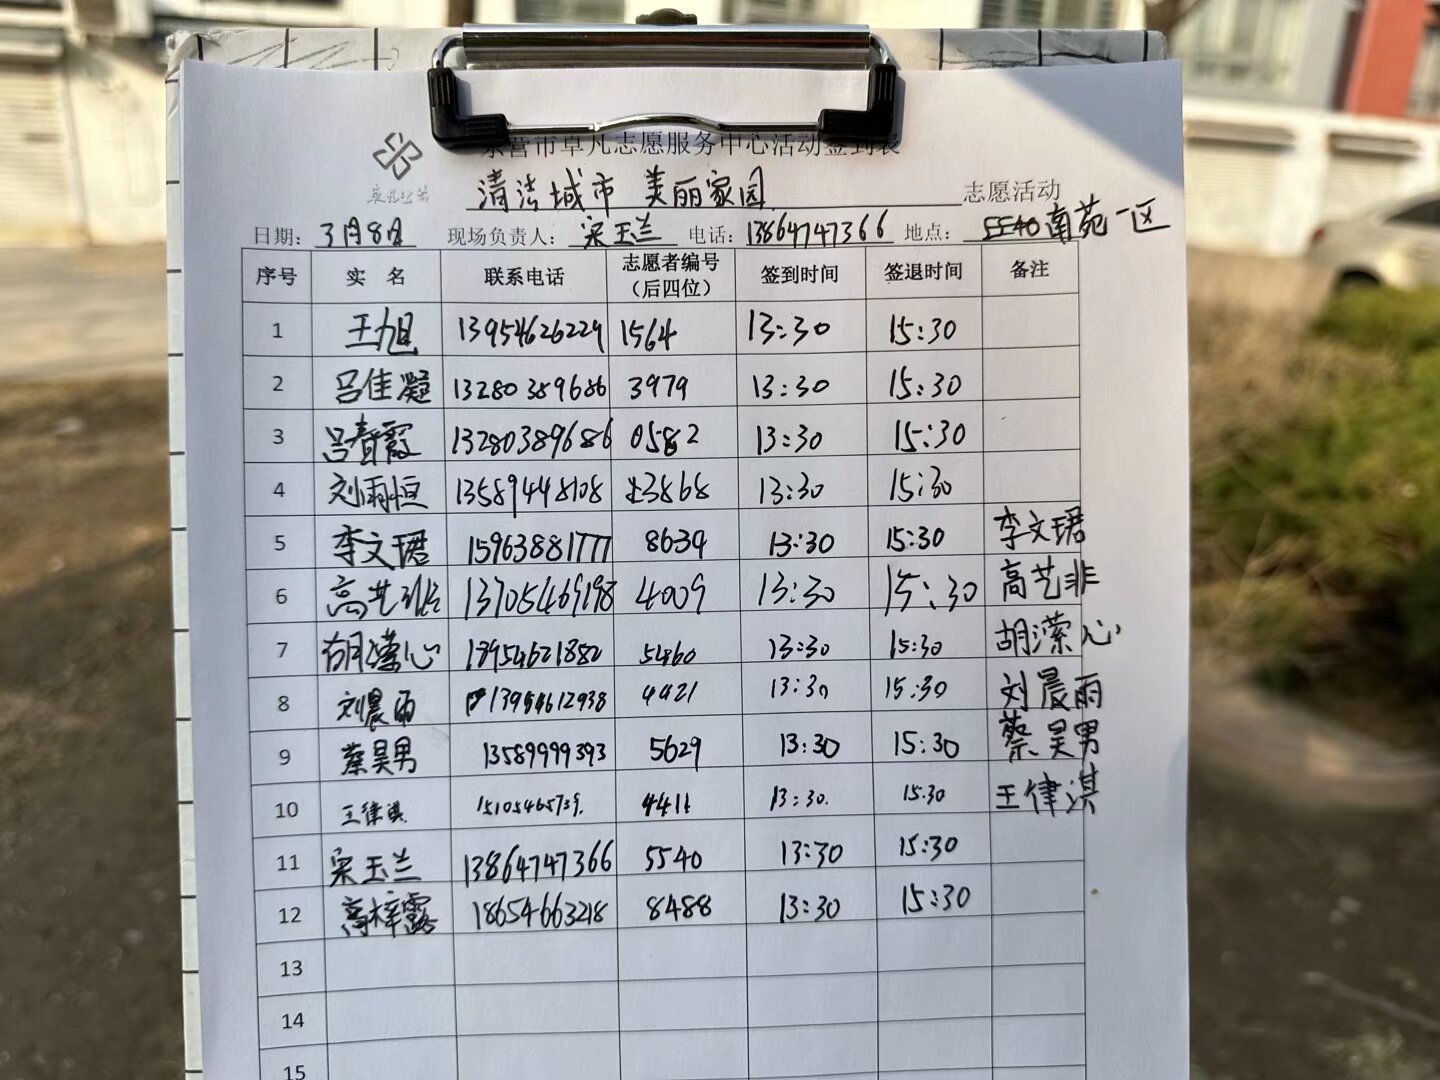 东营市卓凡志愿服务中心活动签到表
清洁城市 美丽家园 志愿活动
日期: 3月8日 现场负责人: 宋玉兰 电话: 13864747366 地点: 南苑一区
序号 实 名 联系电话 志愿者编号（后四位） 签到时间 签退时间 备注
1 王旭 13954626229 1564 13:30 15:30
2 吕佳凝 13280389686 3979 13:30 15:30
3 吕春霞 13280389686 0582 13:30 15:30
4 刘雨恒 13589448108 3868 13:30 15:30
5 李文珺 15963881777 8639 13:30 15:30 李文珺
6 高艺非 13705469198 4009 13:30 15:30 高艺非
7 胡潆心 18954621882 5460 13:30 15:30 胡潆心
8 刘晨雨 13954612938 4421 13:30 15:30 刘晨雨
9 蔡昊男 13589999393 5629 13:30 15:30 蔡昊男
10 王律淇 15105465739 4411 13:30 15:30 王律淇
11 宋玉兰 13864747366 5540 13:30 15:30
12 高梓露 18654663218 8488 13:30 15:30
13
14
15